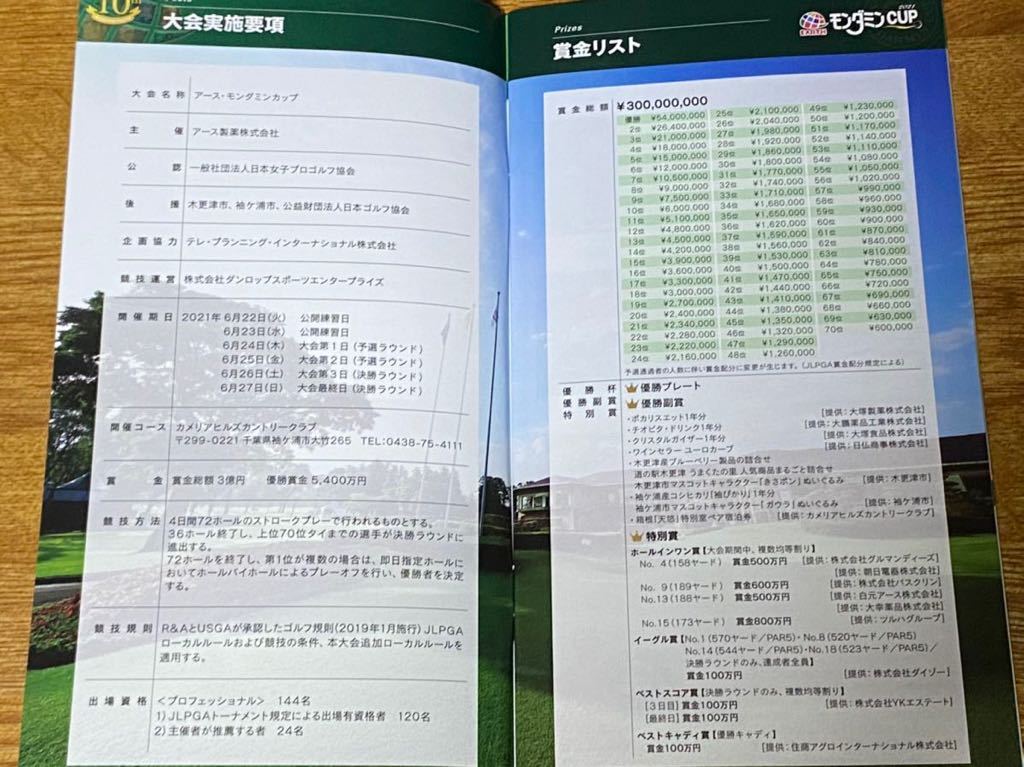 10th
大会実施要項
大会名称 アース・モンダミンカップ
主催 アース製薬株式会社
公認 一般社団法人日本女子プロゴルフ協会
後援 木更津市、袖ケ浦市、公益財団法人日本ゴルフ協会
企画協力 テレ・プランニング・インターナショナル株式会社
競技運営 株式会社ダンロップスポーツエンタープライズ
開催期日 2021年 6月22日(火) 公開練習日
6月23日(水) 公開練習日
6月24日(木) 大会第1日(予選ラウンド)
6月25日(金) 大会第2日(予選ラウンド)
6月26日(土) 大会第3日(決勝ラウンド)
6月27日(日) 大会最終日(決勝ラウンド)
開催コース カメリアヒルズカントリークラブ
〒299-0221 千葉県袖ケ浦市大竹265 TEL:0438-75-4111
賞金 賞金総額 3億円 優勝賞金 5,400万円
競技方法 4日間72ホールのストロークプレーで行われるものとする。
36ホール終了し、上位70位タイまでの選手が決勝ラウンドに
進出する。
72ホールを終了し、第1位が複数の場合は、即日指定ホールに
おいてホールバイホールによるプレーオフを行い、優勝者を決定
する。
競技規則 R&AとUSGAが承認したゴルフ規則(2019年1月施行)JLPGA
ローカルルールおよび競技の条件、本大会追加ローカルルールを
適用する。
出場資格 <プロフェッショナル> 144名
1)JLPGAトーナメント規定による出場有資格者 120名
2)主催者が推薦する者 24名
Prizes
賞金リスト
EARTH モンダミンCUP 2021
賞金総額 ¥300,000,000
優勝 ¥54,000,000
2位 ¥26,400,000
3位 ¥21,000,000
4位 ¥18,000,000
5位 ¥15,000,000
6位 ¥12,000,000
7位 ¥10,500,000
8位 ¥9,000,000
9位 ¥7,500,000
10位 ¥6,000,000
11位 ¥5,100,000
12位 ¥4,800,000
13位 ¥4,500,000
14位 ¥4,200,000
15位 ¥3,900,000
16位 ¥3,600,000
17位 ¥3,300,000
18位 ¥3,000,000
19位 ¥2,700,000
20位 ¥2,400,000
21位 ¥2,340,000
22位 ¥2,280,000
23位 ¥2,220,000
24位 ¥2,160,000
25位 ¥2,100,000
26位 ¥2,040,000
27位 ¥1,980,000
28位 ¥1,920,000
29位 ¥1,860,000
30位 ¥1,800,000
31位 ¥1,770,000
32位 ¥1,740,000
33位 ¥1,710,000
34位 ¥1,680,000
35位 ¥1,650,000
36位 ¥1,620,000
37位 ¥1,590,000
38位 ¥1,560,000
39位 ¥1,530,000
40位 ¥1,500,000
41位 ¥1,470,000
42位 ¥1,440,000
43位 ¥1,410,000
44位 ¥1,380,000
45位 ¥1,350,000
46位 ¥1,320,000
47位 ¥1,290,000
48位 ¥1,260,000
49位 ¥1,230,000
50位 ¥1,200,000
51位 ¥1,170,000
52位 ¥1,140,000
53位 ¥1,110,000
54位 ¥1,080,000
55位 ¥1,050,000
56位 ¥1,020,000
57位 ¥990,000
58位 ¥960,000
59位 ¥930,000
60位 ¥900,000
61位 ¥870,000
62位 ¥840,000
63位 ¥810,000
64位 ¥780,000
65位 ¥750,000
66位 ¥720,000
67位 ¥690,000
68位 ¥660,000
69位 ¥630,000
70位 ¥600,000
予選通過者の人数に伴い賞金配分に変更が生じます。(JLPGA賞金配分規定による)
優勝杯 優勝プレート
優勝副賞 優勝副賞
特別賞
・ポカリスエット1年分 [提供:大塚製薬株式会社]
・チオビタ・ドリンク1年分 [提供:大鵬薬品工業株式会社]
・クリスタルガイザー1年分 [提供:大塚食品株式会社]
・ワインセラー ユーロカーブ [提供:日仏商事株式会社]
・木更津産ブルーベリー製品の詰合せ
道の駅木更津 うまくたの里 人気商品まるごと詰合せ
木更津市マスコットキャラクター「きさポン」ぬいぐるみ [提供:木更津市]
・袖ケ浦産コシヒカリ「袖ぴかり」1年分
袖ケ浦市マスコットキャラクター「ガウラ」ぬいぐるみ [提供:袖ケ浦市]
・箱根「天悠」特別室ペア宿泊券 [提供:カメリアヒルズカントリークラブ]
特別賞
ホールインワン賞【大会期間中、複数均等割り】
No. 4(158ヤード) 賞金500万円 [提供:株式会社グルマンディーズ]
[提供:朝日電器株式会社]
No. 9(189ヤード) 賞金600万円 [提供:株式会社バスクリン]
No.13(188ヤード) 賞金500万円 [提供:白元アース株式会社]
[提供:大幸薬品株式会社]
No.15(173ヤード) 賞金800万円 [提供:ツルハグループ]
イーグル賞【No.1(570ヤード/PAR5)・No.8(520ヤード/PAR5)
No.14(544ヤード/PAR5)・No.18(523ヤード/PAR5)/
決勝ラウンドのみ、達成者全員】
賞金100万円 [提供:株式会社ダイゾー]
ベストスコア賞【決勝ラウンドのみ、複数均等割り】
[3日目] 賞金100万円 [提供:株式会社YKエステート]
[最終日] 賞金100万円
ベストキャディ賞【優勝キャディ】
賞金100万円 [提供:住商アグロインターナショナル株式会社]